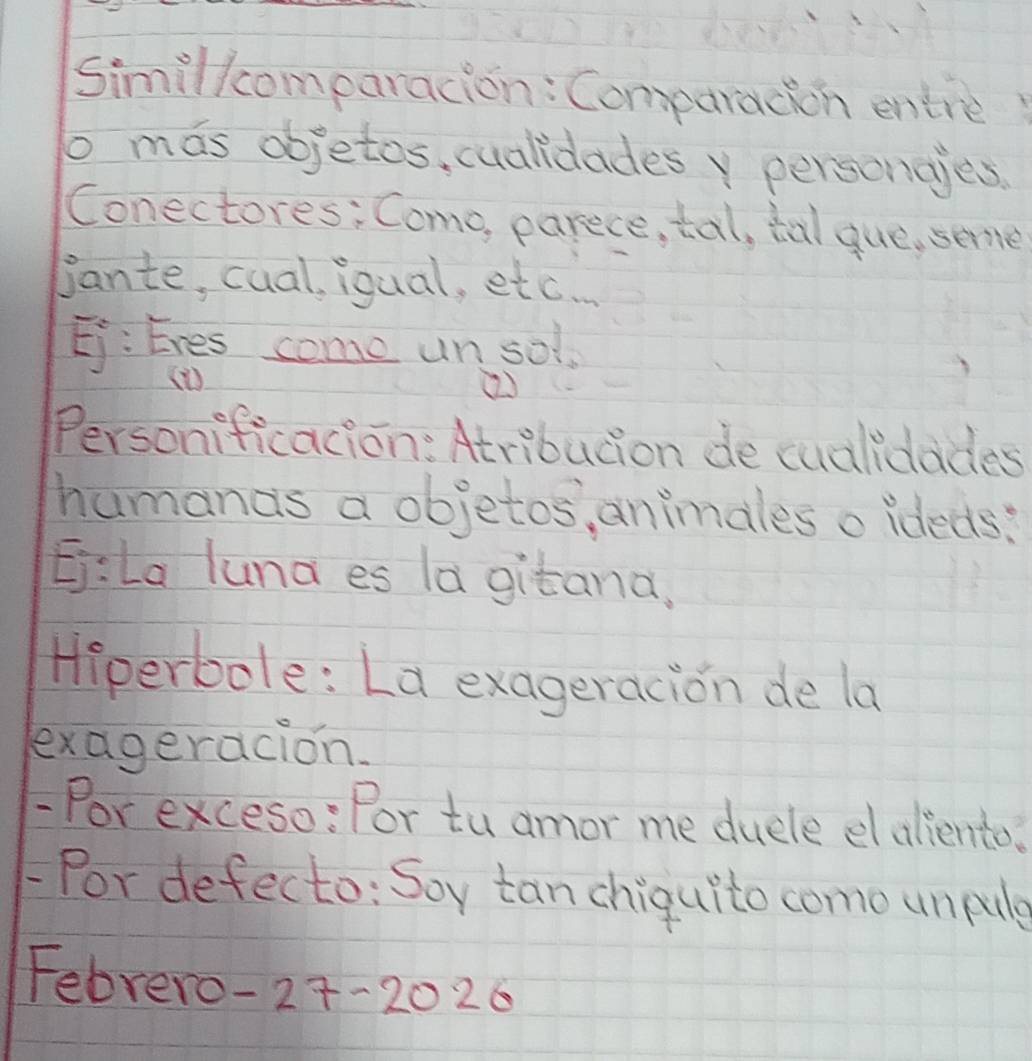 Simil/comparación: Comparación entre
o más objetos, cualidades y personajes.
Conectores: Como, parece, tal, tal que, seme
jante, cual, igual, etc...
Ej: Eres como un sol.
(1) (2)
Personificación: Atribución de cualidades
humanas a objetos, animales o ideas:
Ej: La luna es la gitana.
Hiperbole: La exageración de la
exageración.
- Por exceso: Por tu amor me duele el aliento.
- Por defecto: Soy tan chiquito como un pulg
Febrero-27-2026